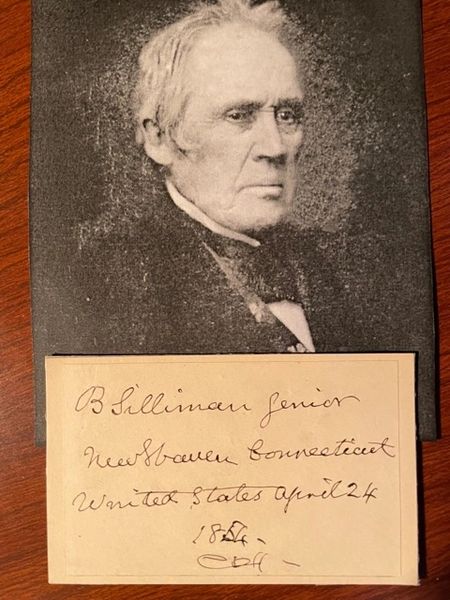 B Silliman Senior
New Haven Connecticut
United States April 24